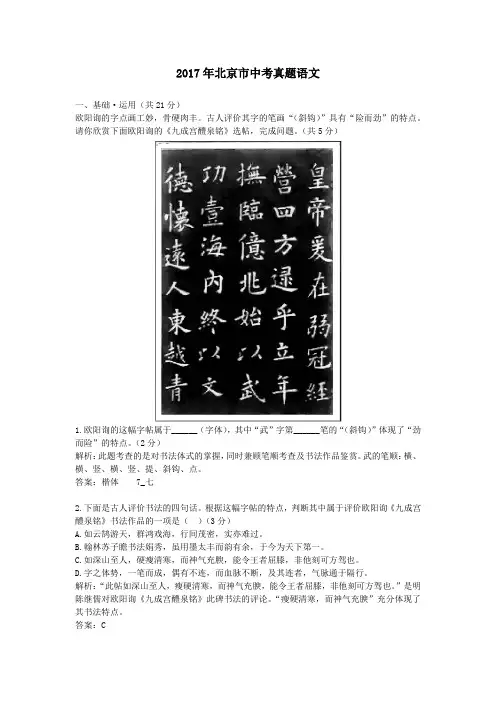 2017年北京市中考真题语文
一、基础·运用(共21分)
欧阳询的字点画工妙，骨硬肉丰。古人评价其字的笔画“(斜钩)”具有“险而劲”的特点。
请你欣赏下面欧阳询的《九成宫醴泉铭》选帖，完成问题。(共5分)
皇帝爰在弱冠經
營四方逯乎立年
撫臨億兆始以武
功壹海内終以文
德懷遠人東越青
1.欧阳询的这幅字帖属于______(字体)，其中“武”字第______笔的“(斜钩)”体现了“劲
而险”的特点。(2分)
解析：此题考查的是对书法体式的掌握，同时兼顾笔顺考查及书法作品鉴赏。武的笔顺：横、
横、竖、横、竖、提、斜钩、点。
答案：楷体 7_七
2.下面是古人评价书法的四句话。根据这幅字帖的特点，判断其中属于评价欧阳询《九成宫
醴泉铭》书法作品的一项是( )(3分)
A.如云鹄游天，群鸿戏海，行间茂密，实亦难过。
B.翰林苏子瞻书法娟秀，虽用墨太丰而韵有余，于今为天下第一。
C.如深山至人，硬瘦清寒，而神气充腴，能令王者屈膝，非他刻可方驾也。
D.字之体势，一笔而成，偶有不连，而血脉不断，及其连者，气脉通于隔行。
解析：“此帖如深山至人，瘦硬清寒，而神气充腴，能令王者屈膝，非他刻可方驾也。”是明
陈继儒对欧阳询《九成宫醴泉铭》此碑书法的评论。“瘦硬清寒，而神气充腴”充分体现了
其书法特点。
答案：C